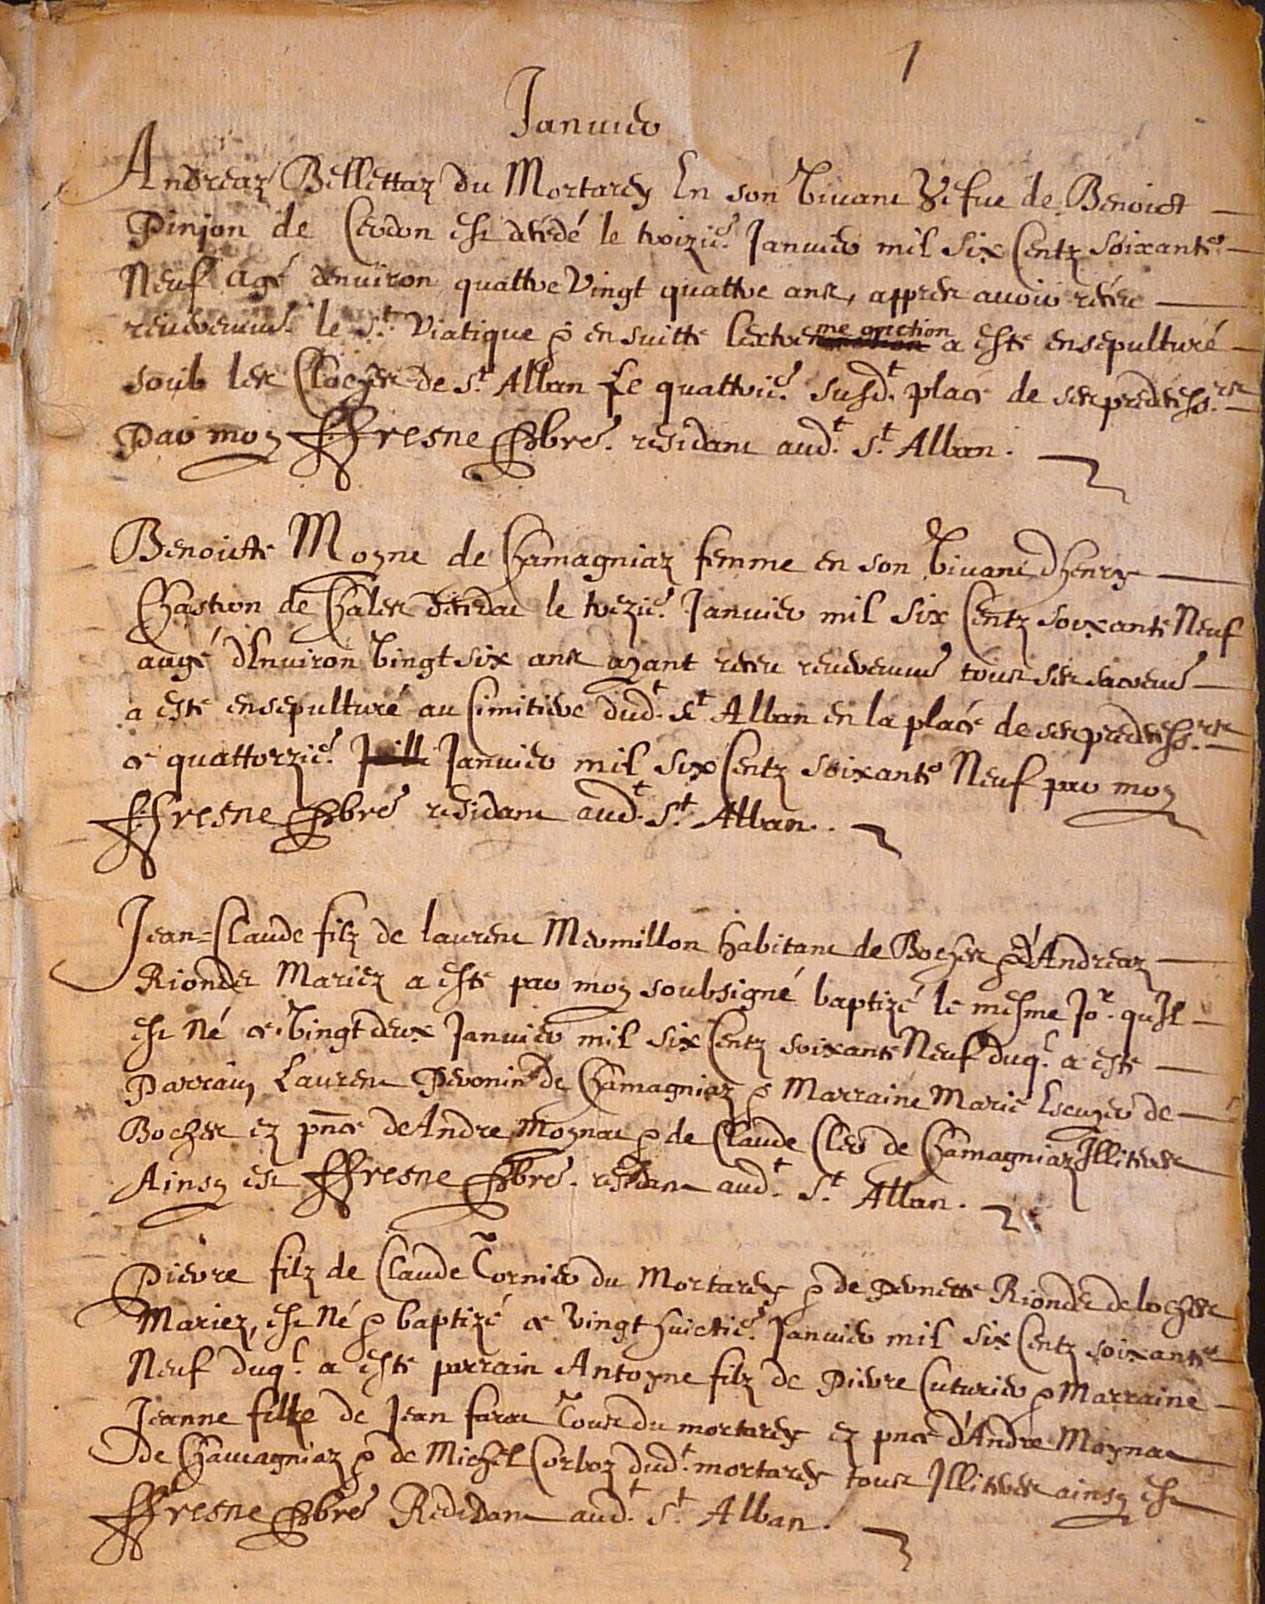 1
Janvier
Andreaz Bellettaz du Mortarey En son Vivant Vefue de Benoict
Pinjon de Cerdon est décédé le troizie. Janvier mil six Centz soixante
Neuf agé denuiron quattre Vingt quattre ans, appres auoir receu
reueremm.t le st. Viatique & en suitte lextreme onction a esté ensepulturé
soub les Cloches de St. Alban Le quattrie. susd.t place de ses predecess.rs
Par moy ffresne pbre. residant aud.t St. Alban.
Benoiste Moyne de Chamagniaz femme en son Vivant dhenry
Chastron de Chales decedae le trezie. Janvier mil six Centz soixante Neuf
augé dEnuiron Vingt six ans ayant receu reueremm.t tous ses sacrem.s
a esté ensepulturé au Cimitiere dud.t St Alban en la place de ses predecess.rs
ce quattorzie. Janvier mil six Centz soixante Neuf par moy
ffresne pbre residant aud.t St. Alban.
Jean=Claude filz de laurent Mermillon habitant de Boches & d'Andreaz
Riondet Mariez a esté par moy soubsigné baptizé le mesme Jo.r quJl
est Né ce Vingt deux Janvier mil six Centz soixante Neuf duq.l a esté
Parrain Laurent Peronin de Chamagniaz & Marraine Marie de
Boches ez pnce de Andre Moynat & de Claude Cler de Chamagniaz Illiteres
Ainsy est ffresne pbre. residant aud.t St. Alban.
Pierre filz de Claude Tornier du Mortarey & de Pernette Riondet de boches
Mariez, est Né & baptizé ce vingt huictie. Janvier mil six Centz soixante
Neuf duq.l a esté parrain Antoyne filz de Pierre Cuturier & Marraine
Jeanne fille de Jean farat Tous du mortarey ez pnce d'Andre Moynat
de Chamagniaz & de Michel Corboz dud.t mortarey tous Illiteres ainsy est
ffresne pbre Residant aud.t St. Alban.